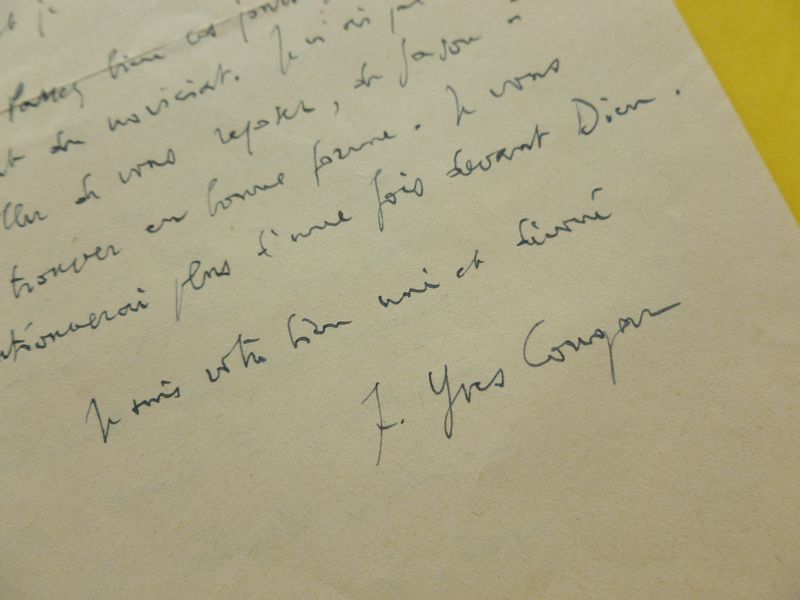 Passez bien ces jours
du noviciat. Je n'ai pas
de vous reposer, de façon à
trouver en bonne forme. Je vous
plus d'une fois devant Dieu.
Je suis votre bien uni et dévoué
F. Yves Congar